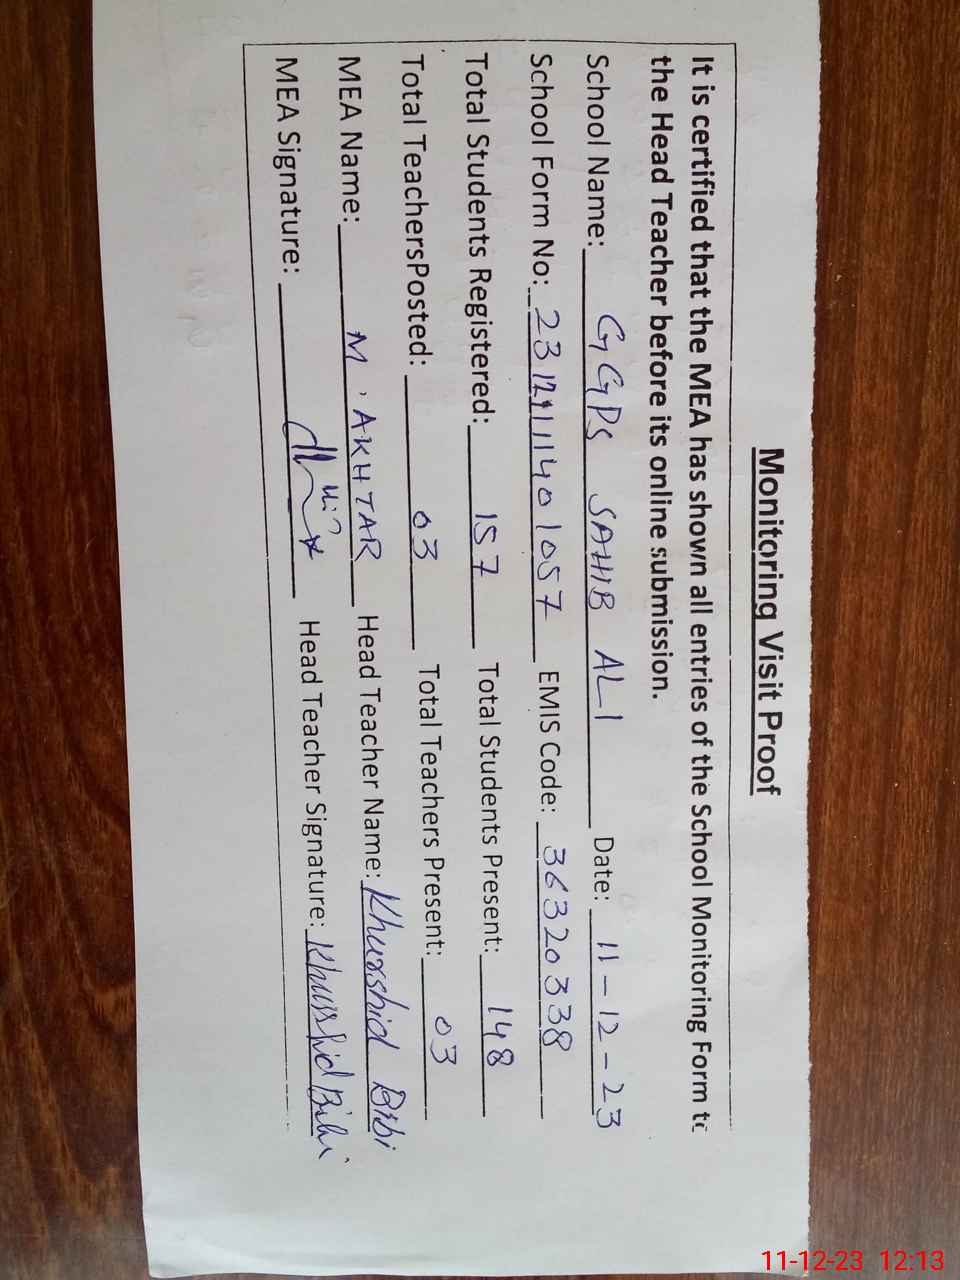 Monitoring Visit Proof
It is certified that the MEA has shown all entries of the School Monitoring Form to
the Head Teacher before its online submission.
School Name: GGPS SAHIB ALI Date: 11-12-23
School Form No: 231211401057 EMIS Code: 36320338
Total Students Registered: 157 Total Students Present: 148
Total TeachersPosted: 03 Total Teachers Present: 03
MEA Name: M. AKHTAR Head Teacher Name: Khurshid Bibi
MEA Signature: Head Teacher Signature: Khurshid Bibi
11-12-23 12:13